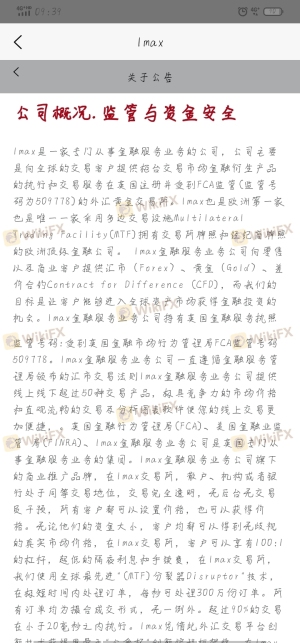 09:39
lmax
关于公告
公司概况.监管与资金安全
lmax是一家专门从事金融服务业务的公司，公司主要
是向全球的交易客户提供柜台交易市场金融衍生产品
的执行和交易服务在英国注册并受到FCA监管(监管号
码为509778)的外汇黄金交易所。lmax也是欧洲第一家
也是唯一一家采用多边交易设施Multilateral
Trading Facility(MTF)拥有交易所牌照和经纪商牌照
的欧洲顶级金融公司。 lmax金融服务业务公司向零售
以及商业客户提供汇币（Forex）、黄金（Gold）、差
价合约Contract for Difference（CFD），而我们的
目标是让客户能够进入全球资产市场获得金融投资的
机会。lmax金融服务业务公司持有英国金融服务执照
监管号码:受到英国金融市场行为管理局FCA监管号码
509778。lmax金融服务业务公司一直遵循金融服务管
理局颁布的汇币交易法则lmax金融服务业务公司提供
线上线下超过50种交易产品，极具竞争力的市场价格
和直观流畅的交易及分析图表软件使你的线上交易更
加便捷，。英国金融行为管理局(FCA)、美国金融业监
管局(FINRA)、lmax金融服务业务公司是英国专门从
事金融服务业务的集团。lmax金融服务业务公司旗下
的商业推广品牌，在lmax交易所，散户、机构或者银
行处于同等交易地位，交易完全透明，无后台无交易
员干预，所有客户都可以设置价格，也可以获得价
格。无论他们的资金大小，客户均都可以得到无歧视
的真实市场价格，在lmax交易所，客户可以享有100:1
的杠杆，超低的隔夜利息和手续费，在lmax交易所，
我们使用全球最先进"(MTF)分裂器Disruptor"技术，
在极短时间内处理订单，每秒可处理300万份订单。所
有订单均为撮合成交形式，无一例外。超过90%的交易
在小于20毫秒之内执行。lmax凭借外汇交易平台创
WikiFX
WikiFX
WikiFX
WikiFX